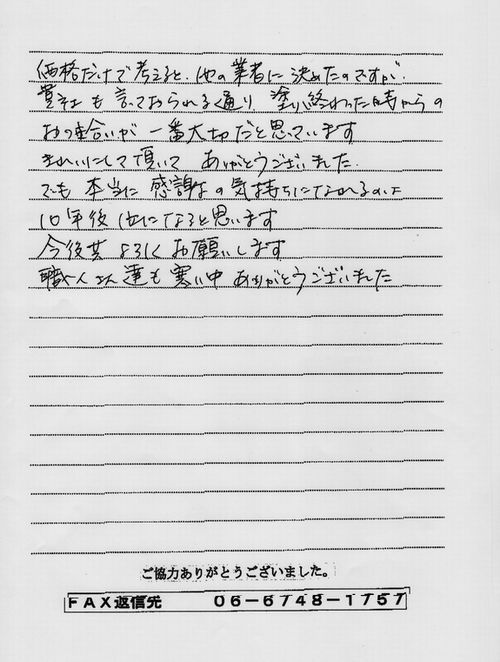 価格だけで考えると、他の業者に決めたのですが、
貴社も言っておられる通り 塗り終わった時からの
お付合いが 一番大切だと思っています
きれいにして頂いて ありがとうございました。
でも 本当に 感謝の気持ちになれるのは
10年後 位になると思います
今後共 よろしく お願いします
職人さん達も 寒い中 ありがとうございました
ご協力ありがとうございました。
FAX返信先 06-6748-1757